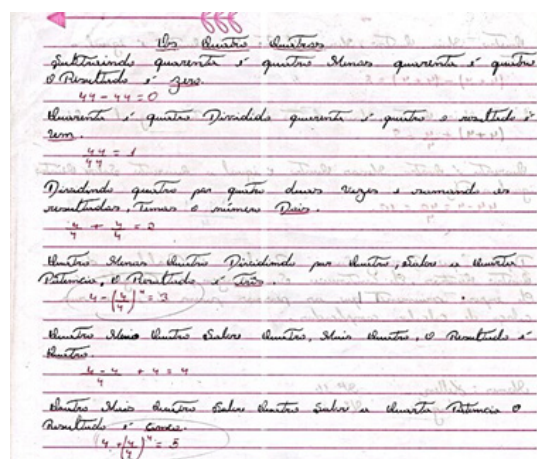 Os Quatro Quatros
Subtraindo quarenta e quatro Menos quarenta e quatro
o Resultado é zero.
44 - 44 = 0
Quarenta e quatro Dividido quarenta e quatro o resultado é
um.
44/44 = 1
Dividindo quatro por quatro duas vezes e somando os
resultados, Temos o número Dois.
4/4 + 4/4 = 2
Quatro Menos Quatro Dividindo por Quatro, Sobre a Quarta
Potencia, o Resultado é três.
4 - (4/4)^4 = 3
Quatro Meno Quatro Sobre Quatro, Mais Quatro, o Resultado é
Quatro.
4 - 4/4 + 4 = 4
Quatro Mais Quatro Sobre Quatro Sobre a Quarta Potencia o
Resultado é cinco.
4 + (4/4)^4 = 5